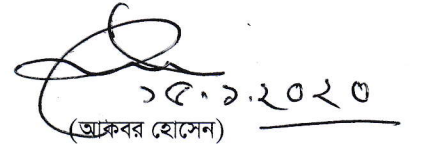 ১৫.১.২০২০
(আকবর হোসেন)